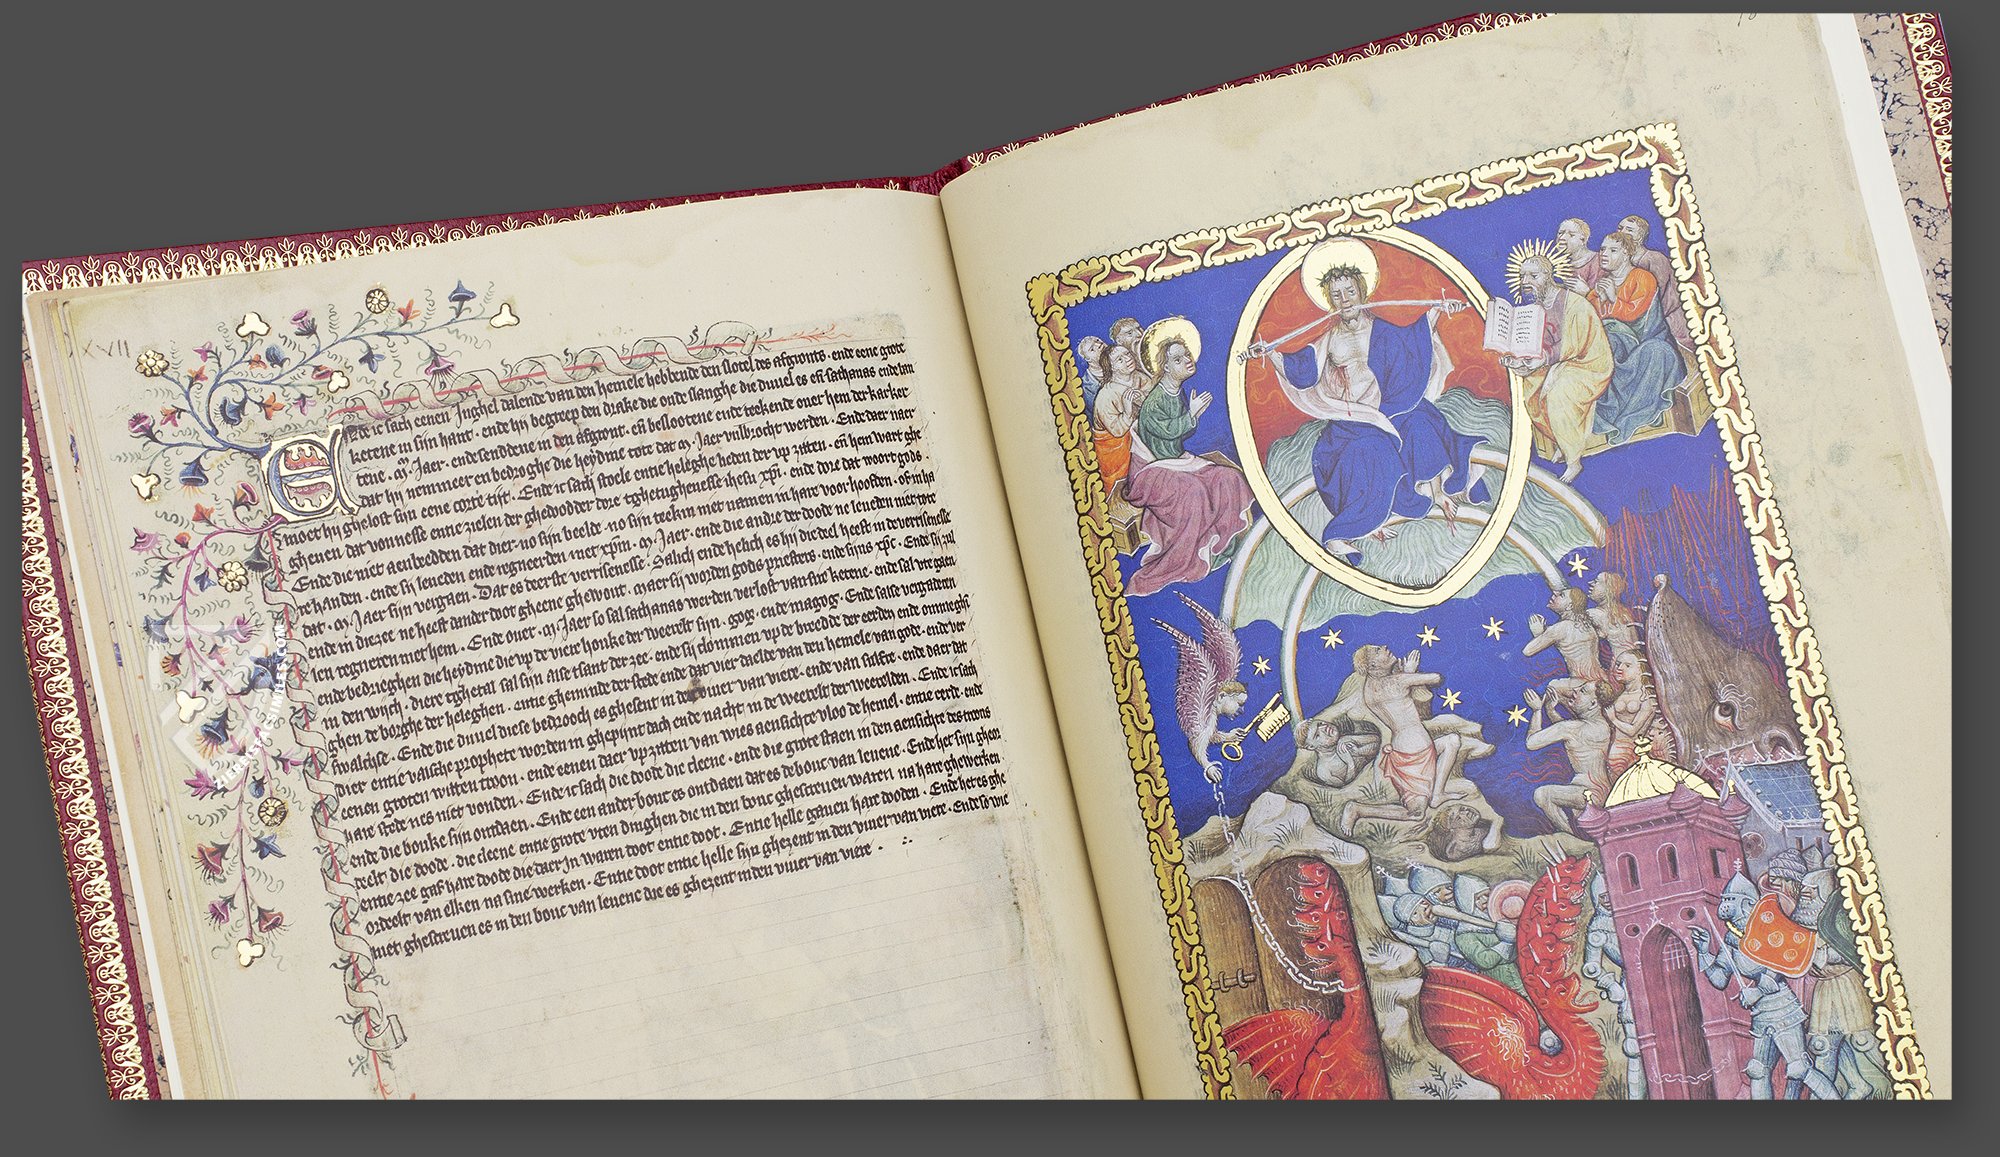 XVII
Ende ic sach eenen Inghel dalende van den hemele hebbende den slotel des afgronts · ende eene grote
ketene in sijn hant · ende hij begreep den drake die oude slanghe die duuel es en̄ sathanas ende bant
tene · Jaer · ende sendene in den afgront · en̄ beslootene ende teekende ouer hem der karker
dat hij nemmeer en bedroghe die heydine tote dat Jaer vulbrocht werden · Ende daer naer
moet hij ghelost sijn eene corte tijt · Ende ic sach stoele entie heleghe seten der up zitten · en̄ hem wart ghe
gheuen dat vonnesse entie zielen der ghedodder dore tghetughenesse ihesu xpi · ende dore dat woort gods ·
Ende die niet aenbedden dat dier · no sijn beelde · no sijn teekin met namen in hare voorhoofden · of in ha
re handen · ende sij leueden ende regneerden met xpm · Jaer · ende die andre der doode ne leueden niet tote
dat Jaer sijn vergaen · Dat es deerste verrisenesse · Salich ende helich es hij die deel heeft in de verrisenesse
ende in dieze ne heeft ander doot gheene ghewout · maer sij worden gods priesters · ende sijns xps · Ende sij zul
len regneren met hem · Ende ouer Jaer so sal sathanas werden verlost van sire ketene · ende sal vte gaen
ende bedrieghen die heydine die up de viere honke der weerelt sijn · gog · ende magog · Ende salse vergaderen
in den wijch · diere tghetal sal sijn alse tsant der zee · ende sij clommen up de breedde der eerden ende ommeghi
ghen de borghe der heleghen · entie gheminde der stede ende dat vier daelde van den hemele van gode · ende ver
swalchse · Ende die duuel diese bedrooch es ghesent in den viuer van viere · ende van sulfre · ende daer dat
dier entie valsche prophete worden in ghepijnt dach ende nacht in de weerelt der weerelden · Ende ic sach
eenen groten witten troon · ende eenen daer up zitten van wies aensichte vloo de hemel · entie eerde · ende
hare stede nes niet vonden · Ende ic sach die doode die cleene · ende die grote staen in den aensichte des troons
ende die bouke sijn ontdaen · Ende een ander bouc es ontdaen dat es de bouc van leuene · Ende het sijn gheor
deelt die doode · die cleene entie grote vten dinghen die in den bouc ghescreuen waren na hare ghewerken
entie zee gaf hare doode die daer in waren doot entie doot · Entie helle gauen hare dooden · Ende het es ghe
ordeelt van elken na sine werken · Entie doot entie helle sijn ghezent in den viuer van viere · Ende so wie
niet ghescreuen es in den bouc van leuene die es ghezent in den viuer van viere ·